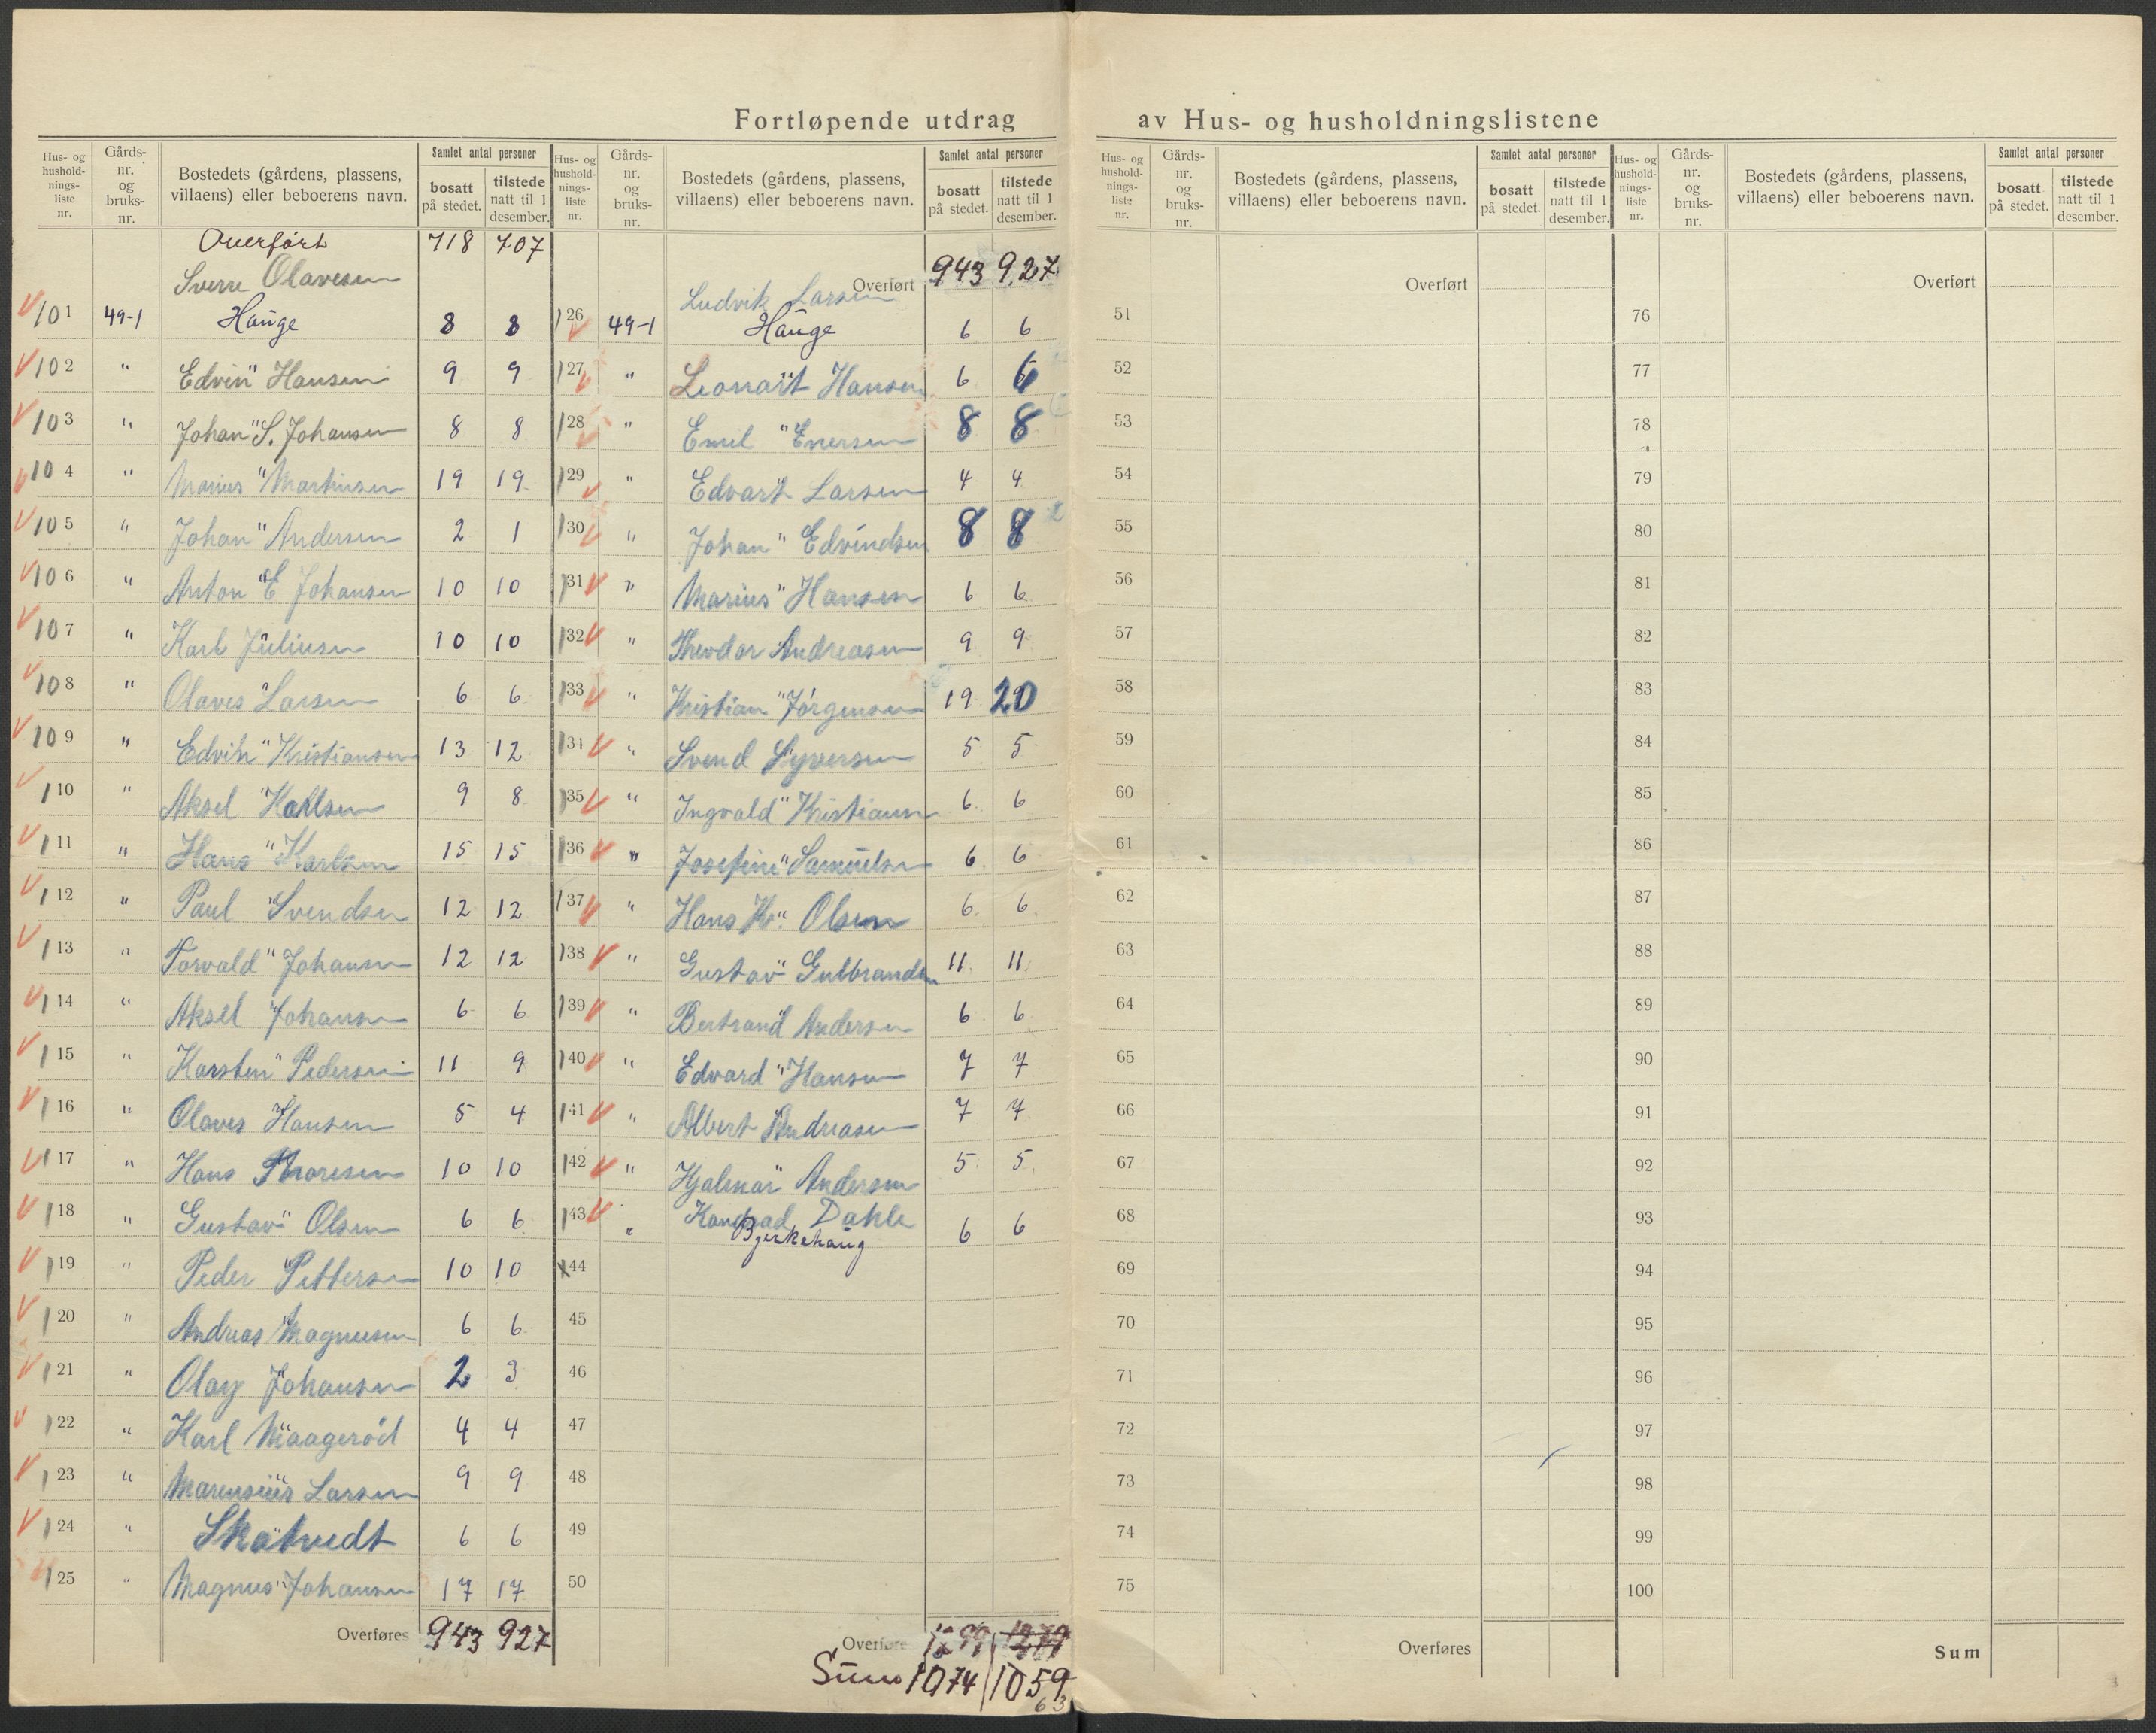 Fortløpende utdrag av Hus- og husholdningslistene
Hus- og hushold-nings-liste nr.
Gårds-nr. og bruks-nr.
Bostedets (gårdens, plassens, villaens) eller beboerens navn.
Samlet antal personer
bosatt på stedet.
tilstede natt til 1 desember.
Overført 718 707
Sverre Olavesen
101 49-1 Hauge 8 8
102 " Edvin " Hansen 9 9
103 " Johan " S. Johansen 8 8
104 " Marius " Martinsen 19 19
105 " Johan " Andersen 2 1
106 " Anton " E Johansen 10 10
107 " Karl Juliusen 10 10
108 " Olaves " Larsen 6 6
109 " Edvin " Kristiansen 13 12
110 " Aksel " Karlsen 9 8
111 " Hans " Karlsen 15 15
112 " Paul " Svendsen 12 12
113 " Torvald " Johansen 12 12
114 " Aksel Johansen 6 6
115 " Karsten " Pedersen 11 9
116 " Olaves Hansen 5 4
117 " Hans Thoresen 10 10
118 " Gustav " Olsen 6 6
119 " Peder " Pettersen 10 10
120 " Andreas " Magnusen 6 6
121 " Olay Johansen 2 3
122 " Karl Maagerød 4 4
123 " Marensius Larsen 9 9
124 " Skatvedt 6 6
125 " Magnus " Johansen 17 17
Overføres 943 927
Hus- og hushold-nings-liste nr.
Gårds-nr. og bruks-nr.
Bostedets (gårdens, plassens, villaens) eller beboerens navn.
Samlet antal personer
bosatt på stedet.
tilstede natt til 1 desember.
Overført 943 927
Ludvik Larsen
126 49-1 Hauge 6 6
127 " Leonart Hansen 6 6
128 " Emil " Enersen 8 8
129 " Edvart Larsen 4 4
130 " Johan " Edvindsen 8 8
131 " Marius " Hansen 6 6
132 " Theodor Andreasen 9 9
133 " Kristian " Jørgensen 19 20
134 " Svend Syversen 5 5
135 " Ingvald " Kristiansen 6 6
136 " Josefine " Samuelsen 6 6
137 " Hans Kr. " Olsen 6 6
138 " Gustav " Gulbrandsen 11 11
139 " Bertrand Andersen 6 6
140 " Edvard " Hansen 7 7
141 " Albert " Andreasen 7 7
142 " Hjalmar " Andersen 5 5
143 " Kondrad Dahle
Bjerkehaug 6 6
44
45
46
47
48
49
50
Overføres
Sum 1074 1059
63
Hus- og hushold-nings-liste nr.
Gårds-nr. og bruks-nr.
Bostedets (gårdens, plassens, villaens) eller beboerens navn.
Samlet antal personer
bosatt på stedet.
tilstede natt til 1 desember.
Overført
51
52
53
54
55
56
57
58
59
60
61
62
63
64
65
66
67
68
69
70
71
72
73
74
75
Overføres
Hus- og hushold-nings-liste nr.
Gårds-nr. og bruks-nr.
Bostedets (gårdens, plassens, villaens) eller beboerens navn.
Samlet antal personer
bosatt på stedet.
tilstede natt til 1 desember.
Overført
76
77
78
79
80
81
82
83
84
85
86
87
88
89
90
91
92
93
94
95
96
97
98
99
100
Sum